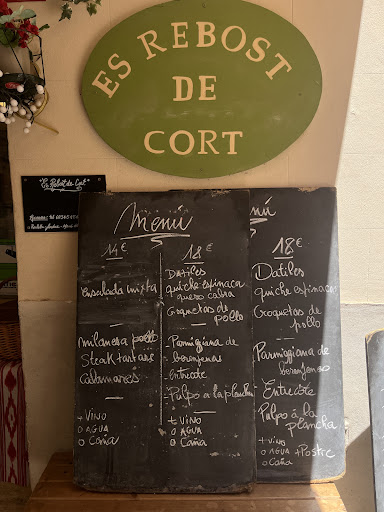 ES REBOST
DE
CORT
Es Rebost de Cort
Menú
14€
Ensalada mixta
Milanesa pollo
Steak tartare
Calamares
+ Vino
o AGUA
o Caña
18€
DATiles
quiche espinaca
queso cabra
Croquetas de
pollo
- Parmigiana de
berenjenas
- Entrecote
- Pulpo a la plancha
+ Vino
o AGUA
o Caña
nú
18€
DATiles
quiche espinacas
Croquetas de
pollo
Parmigiana de
berenjenas
- Entrecôte
Pulpo à la
plancha
+ Vino
o AGUA + Postre
o Caña